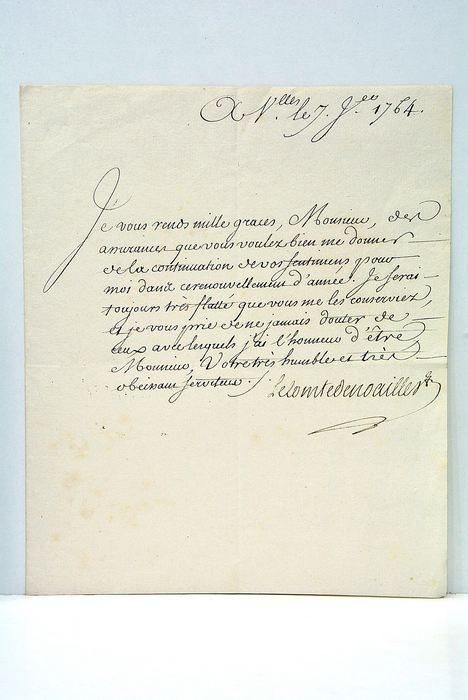 A V.lles le 7. J.er 1764.
Je vous rends mille graces, Monsieur, des
assurances que vous voulez bien me donner
de la continuation de vos sentimens pour
moi dans ce renouvellement d'année. Je serai
toujours très flatté que vous me les conserviez,
et je vous prie de ne jamais douter de
ceux avec lesquels j'ai l'honneur d'être,
Monsieur, Votre très humble et très
obeissant serviteur./.
Le Comte de noailles